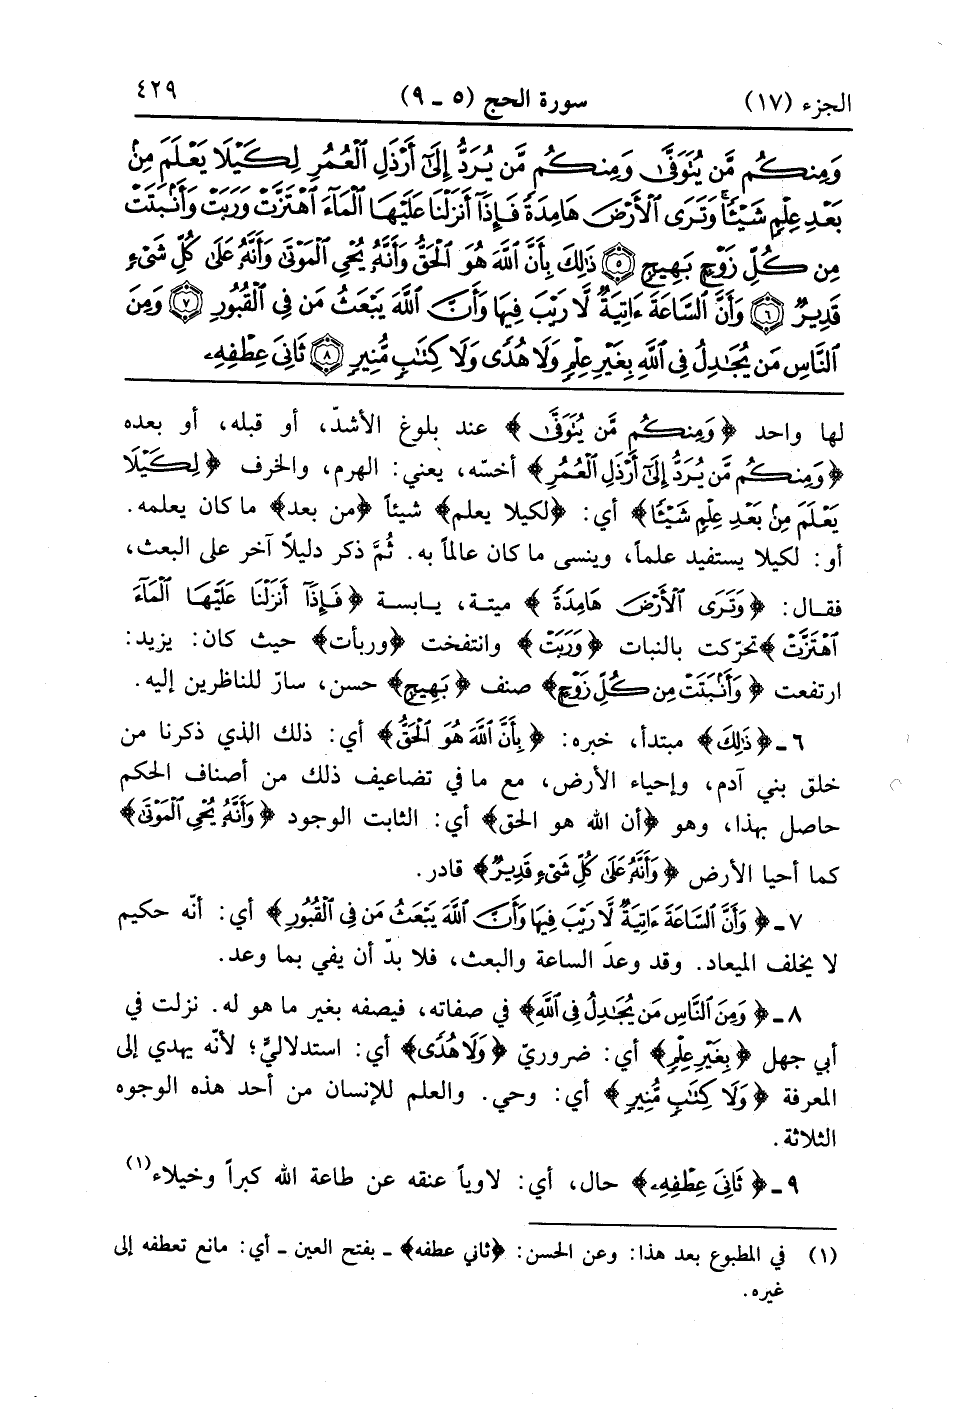 الجزء (١٧) سورة الحج (٥ ـ ٩) ٤٢٩
وَمِنكُم مَّن يُتَوَفَّىٰ وَمِنكُم مَّن يُرَدُّ إِلَىٰٓ أَرْذَلِ ٱلْعُمُرِ لِكَيْلَا يَعْلَمَ مِنۢ
بَعْدِ عِلْمٍ شَيْـًٔا ۚ وَتَرَى ٱلْأَرْضَ هَامِدَةً فَإِذَآ أَنزَلْنَا عَلَيْهَا ٱلْمَآءَ ٱهْتَزَّتْ وَرَبَتْ وَأَنۢبَتَتْ
مِن كُلِّ زَوْجٍۭ بَهِيجٍ ۝٥ ذَٰلِكَ بِأَنَّ ٱللَّهَ هُوَ ٱلْحَقُّ وَأَنَّهُۥ يُحْىِ ٱلْمَوْتَىٰ وَأَنَّهُۥ عَلَىٰ كُلِّ شَىْءٍ
قَدِيرٌ ۝٦ وَأَنَّ ٱلسَّاعَةَ ءَاتِيَةٌ لَّا رَيْبَ فِيهَا وَأَنَّ ٱللَّهَ يَبْعَثُ مَن فِى ٱلْقُبُورِ ۝٧ وَمِنَ
ٱلنَّاسِ مَن يُجَٰدِلُ فِى ٱللَّهِ بِغَيْرِ عِلْمٍ وَلَا هُدًى وَلَا كِتَٰبٍ مُّنِيرٍ ۝٨ ثَانِىَ عِطْفِهِۦ
لها واحد ﴿وَمِنكُم مَّن يُتَوَفَّىٰ﴾ عند بلوغ الأشدّ، أو قبله، أو بعده
﴿وَمِنكُم مَّن يُرَدُّ إِلَىٰٓ أَرْذَلِ ٱلْعُمُرِ﴾ أخسّه، يعني: الهرم، والخرف ﴿لِكَيْلَا
يَعْلَمَ مِنۢ بَعْدِ عِلْمٍ شَيْـًٔا﴾ أي: ﴿لكيلا يعلم﴾ شيئاً ﴿من بعد﴾ ما كان يعلمه.
أو: لكيلا يستفيد علماً، وينسى ما كان عالماً به. ثُمَّ ذكر دليلاً آخر على البعث،
فقال: ﴿وَتَرَى ٱلْأَرْضَ هَامِدَةً﴾ ميتة، يابسة ﴿فَإِذَآ أَنزَلْنَا عَلَيْهَا ٱلْمَآءَ
ٱهْتَزَّتْ﴾ تحرّكت بالنبات ﴿وَرَبَتْ﴾ وانتفخت ﴿وربأت﴾ حيث كان: يزيد:
ارتفعت ﴿وَأَنۢبَتَتْ مِن كُلِّ زَوْجٍ﴾ صنف ﴿بَهِيجٍ﴾ حسن، سارّ للناظرين إليه.
٦ ـ ﴿ذَٰلِكَ﴾ مبتدأ، خبره: ﴿بِأَنَّ ٱللَّهَ هُوَ ٱلْحَقُّ﴾ أي: ذلك الذي ذكرنا من
خلق بني آدم، وإحياء الأرض، مع ما في تضاعيف ذلك من أصناف الحكم
حاصل بهذا، وهو ﴿أن الله هو الحق﴾ أي: الثابت الوجود ﴿وَأَنَّهُۥ يُحْىِ ٱلْمَوْتَىٰ﴾
كما أحيا الأرض ﴿وَأَنَّهُۥ عَلَىٰ كُلِّ شَىْءٍ قَدِيرٌ﴾ قادر.
٧ ـ ﴿وَأَنَّ ٱلسَّاعَةَ ءَاتِيَةٌ لَّا رَيْبَ فِيهَا وَأَنَّ ٱللَّهَ يَبْعَثُ مَن فِى ٱلْقُبُورِ﴾ أي: أنّه حكيم
لا يخلف الميعاد. وقد وعدَ الساعة والبعث، فلا بدّ أن يفي بما وعد.
٨ ـ ﴿وَمِنَ ٱلنَّاسِ مَن يُجَٰدِلُ فِى ٱللَّهِ﴾ في صفاته، فيصفه بغير ما هو له. نزلت في
أبي جهل ﴿بِغَيْرِ عِلْمٍ﴾ أي: ضروريّ ﴿وَلَا هُدًى﴾ أي: استدلاليٍّ؛ لأنّه يهدي إلى
المعرفة ﴿وَلَا كِتَٰبٍ مُّنِيرٍ﴾ أي: وحي. والعلم للإنسان من أحد هذه الوجوه
الثلاثة.
٩ ـ ﴿ثَانِىَ عِطْفِهِۦ﴾ حال، أي: لاوياً عنقه عن طاعة الله كبراً وخيلاء(١)
(١) في المطبوع بعد هذا: وعن الحسن: ﴿ثاني عطفه﴾ ـ بفتح العين ـ أي: مانع تعطفه إلى
غيره.